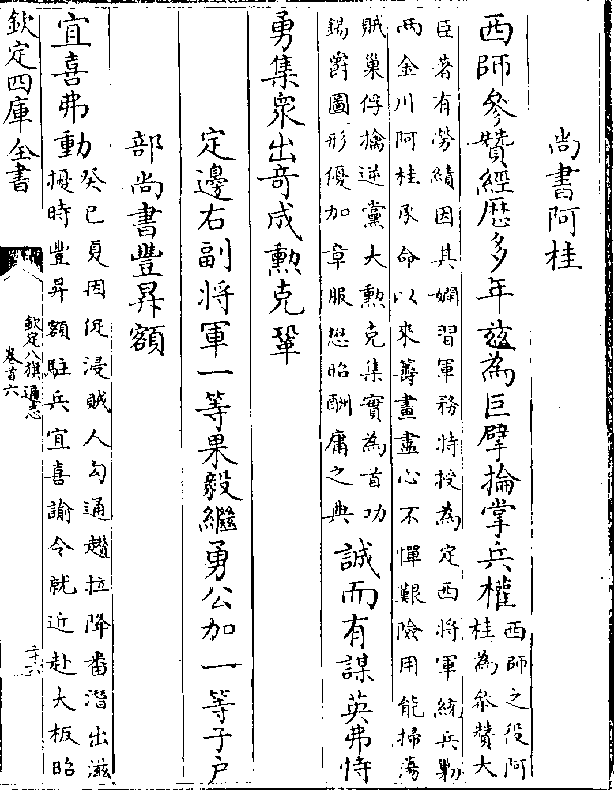 尚書阿桂
西師參贊經歷多年兹為巨擘掄掌兵權西師之役阿
桂為參贊大
臣著有勞績因其嫻習軍務特授為定西將軍統兵勦
兩金川阿桂承命以來籌畫盡心不憚艱險用能掃蕩
賊巢俘擒逆黨大勲克集實為首功
錫爵圖形優加章服懋昭酬庸之典誠而有謀英弗恃
勇集衆出竒成勲克鞏
定邊右副將軍一等果毅繼勇公加一等子户
部尚書豐昇額
宜喜弗動癸巳夏因促浸賊人勾通趲拉降番潛出滋
擾時豐昇額駐兵宜喜諭令就近赴大板昭
欽定四庫全書
欽定八旗通志
卷首六
二十六